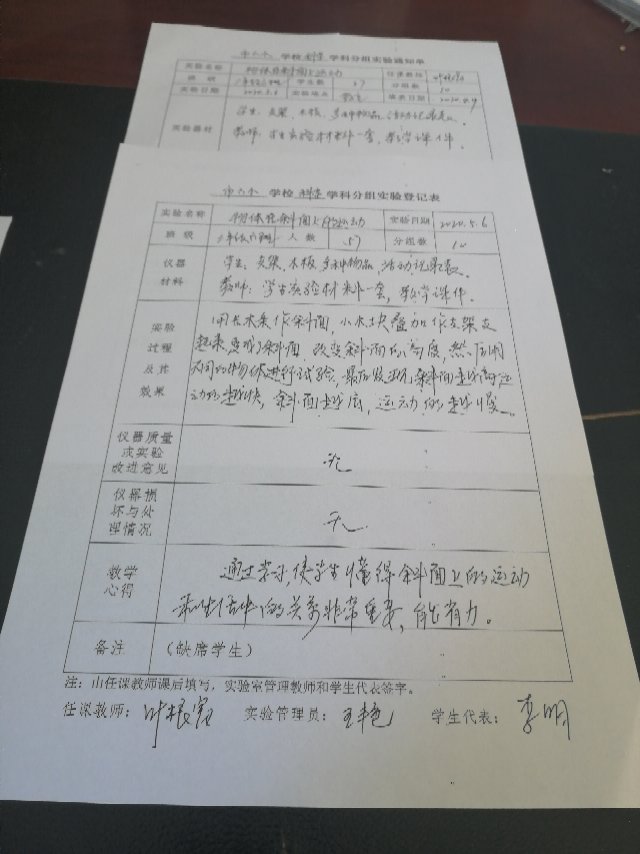 市六小 学校 科学 学科分组实验通知单
实验名称 物体在斜面上运动 任课教师
班级 学生数 57 分组数 10
实验日期 2020.5.6 实验地点 填表日期 2020.4.9
实验器材 学生:支架、木板、多种物品、活动记录表。
教师:学生实验材料一套,教学课件。
市六小 学校 科学 学科分组实验登记表
实验名称 物体在斜面上的运动 实验日期 2020.5.6
班级 人数 57 分组数 10
仪器材料 学生:支架、木板、多种物品,活动记录表。
教师:学生实验材料一套,教学课件。
实验过程及其效果 用长木条作斜面,小木块叠加作支架支
起来,变成了斜面,改变斜面的高度,然后用
不同的物体进行试验,最后发现:斜面越高运
动的越快,斜面越底,运动的越慢。
仪器质量或实验改进意见 无
仪器损坏与处理情况 无
教学心得 通过学习,使学生懂得斜面上的运动
和生活中的关系非常重要,
备注 (缺席学生)
注:由任课教师课后填写,实验室管理教师和学生代表签字。
任课教师: 实验管理员:王艳 学生代表:李明